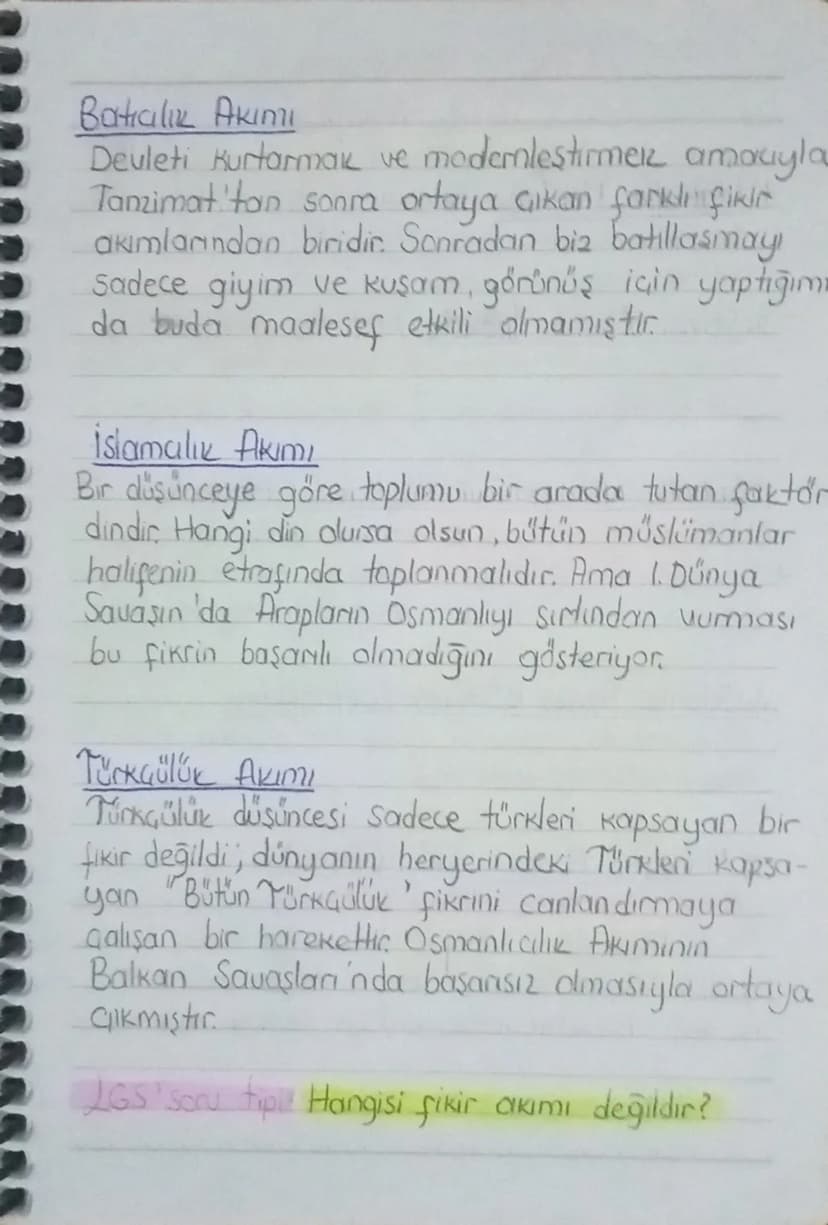 Batıcılık Akımı
Devleti kurtarmak ve modernleştirmek amacıyla
Tanzimat'tan sonra ortaya çıkan farklı fikir
akımlarından biridir. Sonradan biz batıllaşmayı
sadece giyim ve kuşam, görünüş için yaptığım
da buda maalesef etkili olmamıştır.
İslamcılık Akımı
Bir düşünceye göre toplumu bir arada tutan faktör
dindir. Hangi din olursa olsun, bütün müslümanlar
halifenin etrafında toplanmalıdır. Ama 1. Dünya
Savaşın'da Arapların Osmanlıyı sırtından vurması
bu fikrin başarılı olmadığını gösteriyor.
Türkçülük Akımı
Türkçülük düşüncesi sadece türkleri kapsayan bir
fikir değildi, dünyanın heryerindeki Türkleri kapsa-
yan "Bütün Türkçülük' fikrini canlandırmaya
çalışan bir harekettir. Osmanlıcılık Akımının
Balkan Savaşları'nda başarısız olmasıyla ortaya
çıkmıştır.
LGS' soru tipi Hangisi fikir akımı değildir?